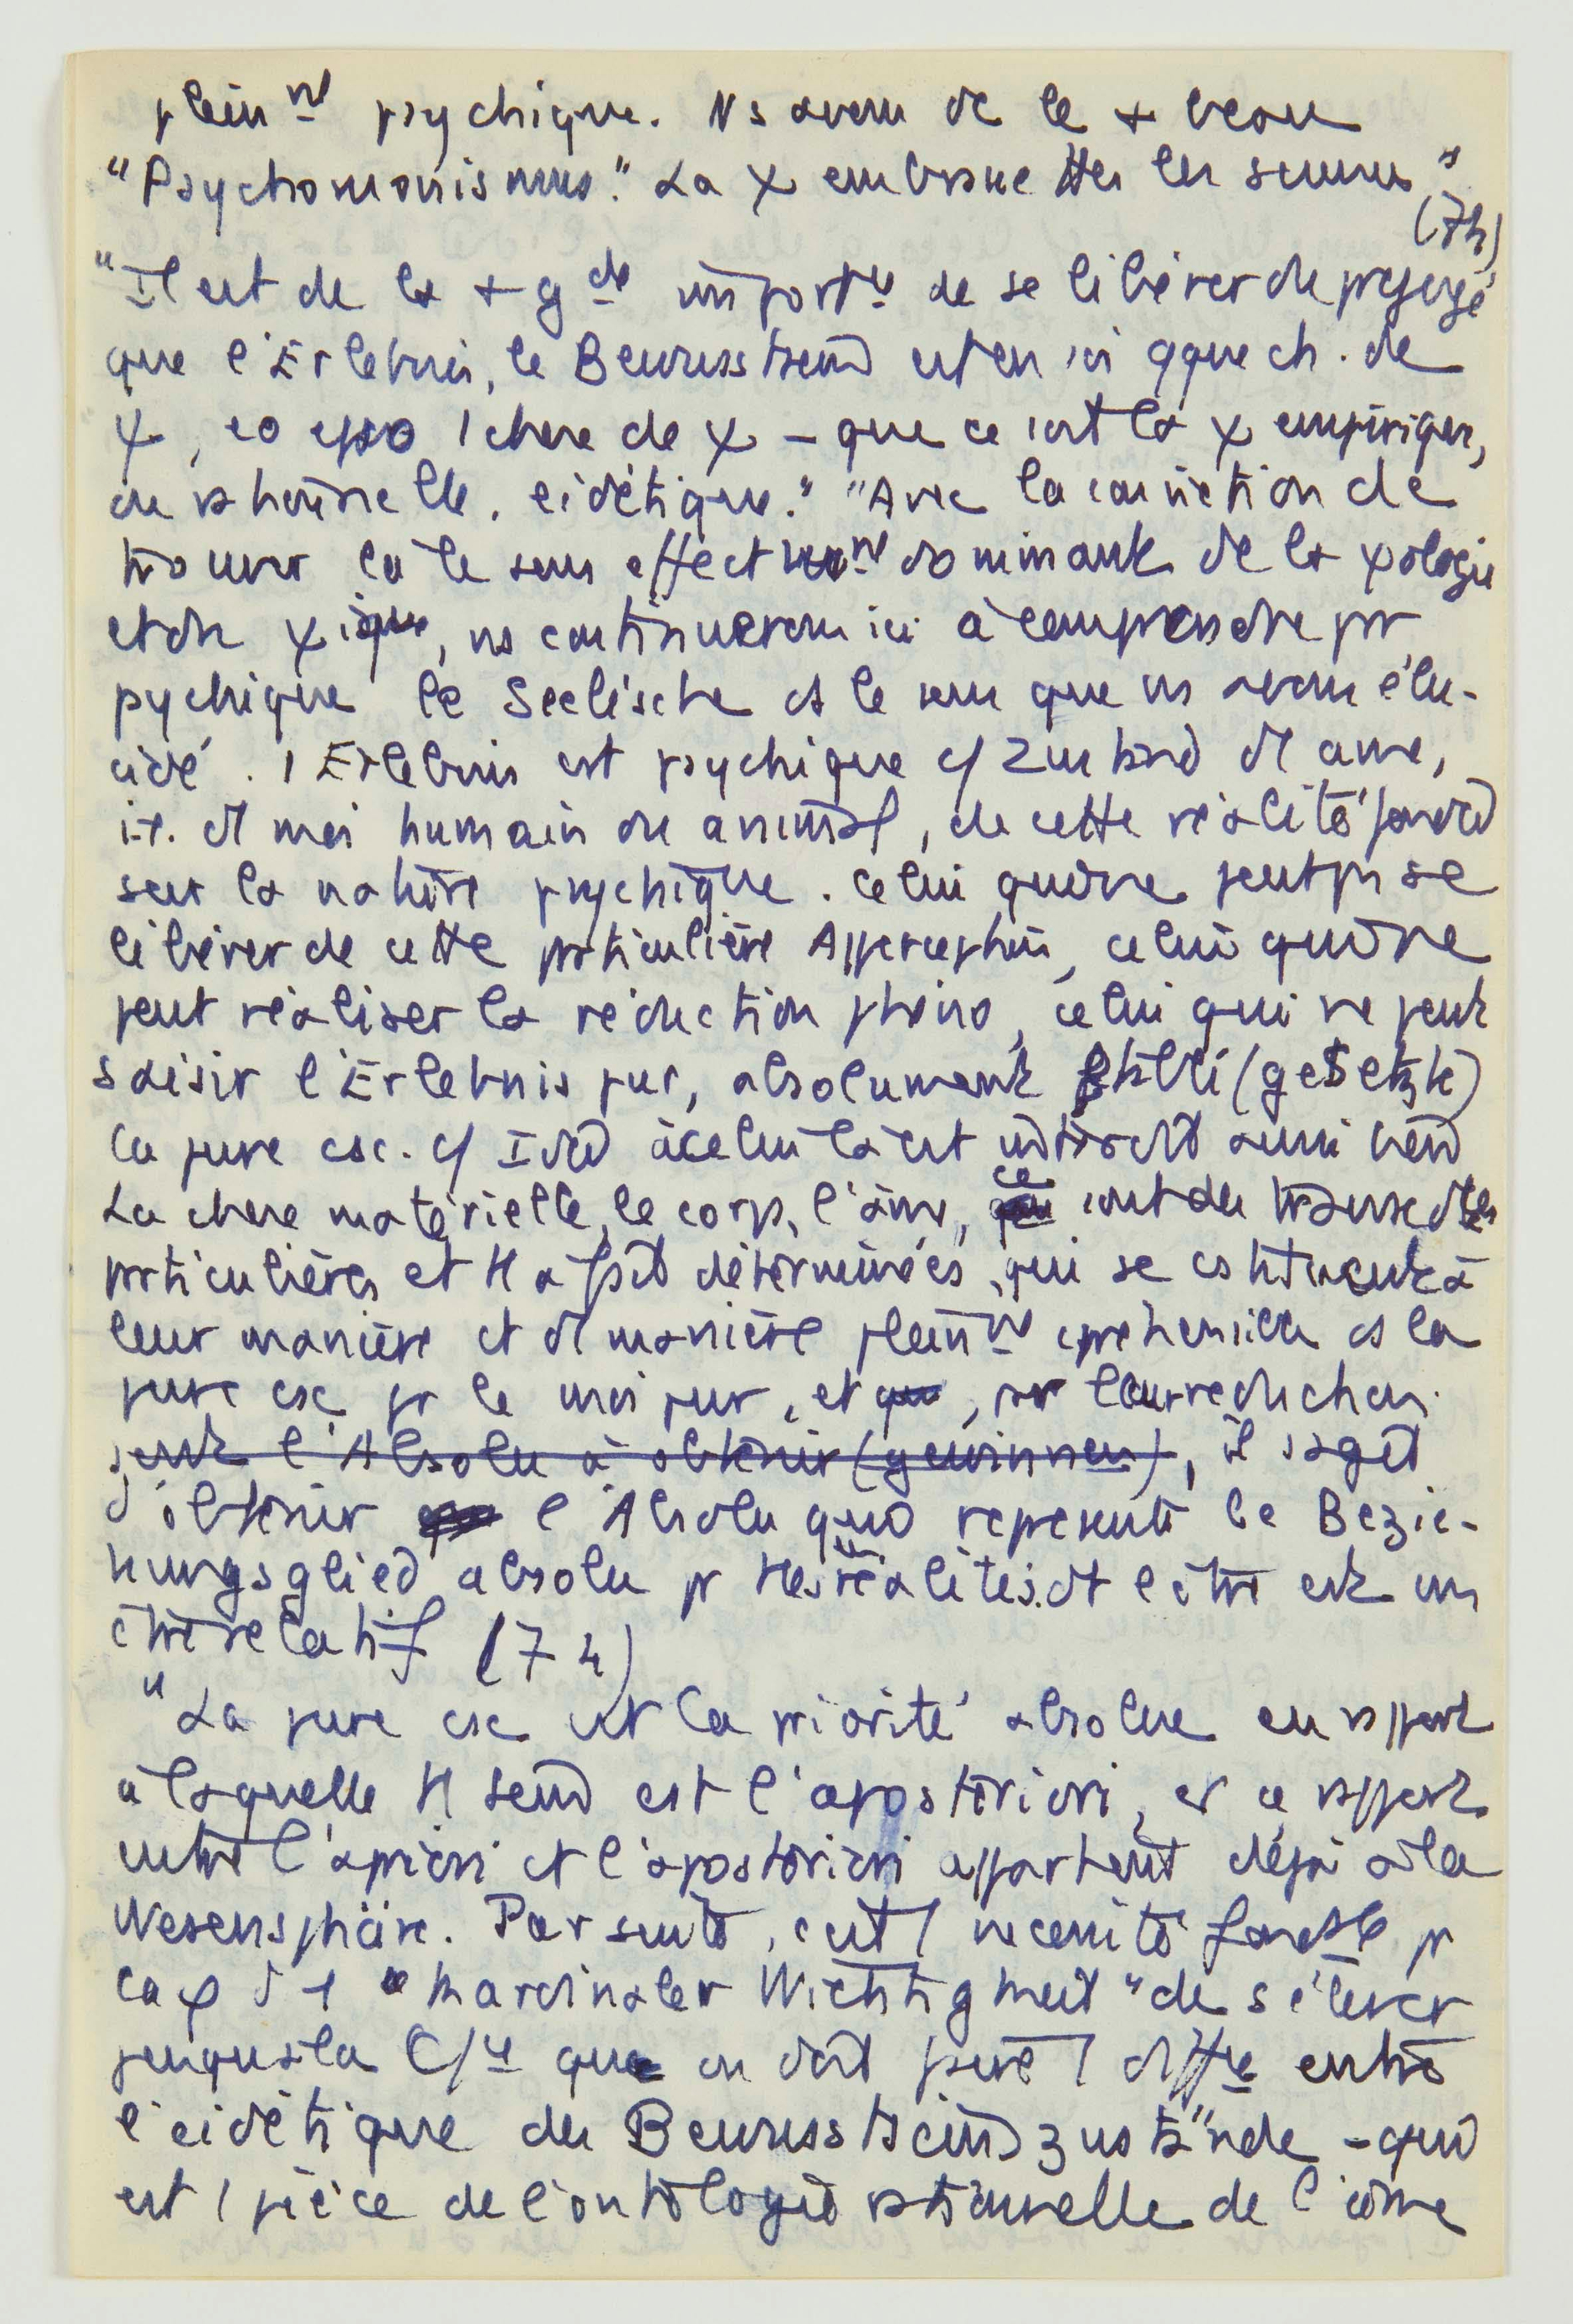 plein nt psychique. Ns avons ds le + beau
"Psychomonismus." La χ embrasse ttes les sciences"
(74)
"Il est de la + gde import ce de se libérer du préjugé
que l'Erlebnis, le Bewusstsein est en soi qque ch. de
χ, eo ipso 1 chose de χ – que ce soit la χ empirique,
ou rationnelle, eidétique." "Avec la conviction de
trouver là le sens effectivemt dominant de la χologie
et du χique, ns continuerons ici à comprendre pr
psychique le Seelische ds le sens que ns avons élu-
cidé. 1 Erlebnis est psychique c/ Zustand d1 ame,
i.e. d1 moi humain ou animal, de cette réalité fondée
sur la nature psychique. Celui qui ne peut pas se
libérer de cette particulière Apperception, celui qui ne
peut réaliser la réduction phéno, celui qui ne peut
saisir l'Erlebnis pur, absolument établi (gesetzte)
la pure csc. c/ Idée à celui là est interdit aussi bien
La chose matérielle, le corps, l'âme, ce sont des transcdces
particulières et tt à fait déterminées, qui se cstituent à
leur manière et d1 manière pleinnt cpréhensible ds la
pure csc pr le moi pur, et qui, par leur reduction
peut l'Absolu à obtenir (gewinnen), il s'agit
d'obtenir l'Absolu qui représente le Bezie-
hungsglied absolu pr ttes réalités dt l'être est un
être relatif (74)
"La pure csc est la priorité absolue en rapport
à laquelle tt sein est l'aposteriori, et ce rapport
entre l'apriori et l'aposteriori appartient déjà à la
Wesensphäre. Par suite, c'est 1 necessité fondtle pr
la φ d1 "kardinaler Wichtigkeit" de s'élever
jusqu'à la C/ce que on doit faire 1 diffce entre
l'eidétique des Bewusstseinszustände – qui
est 1 pièce de l'ontologie rationnelle de l'âme